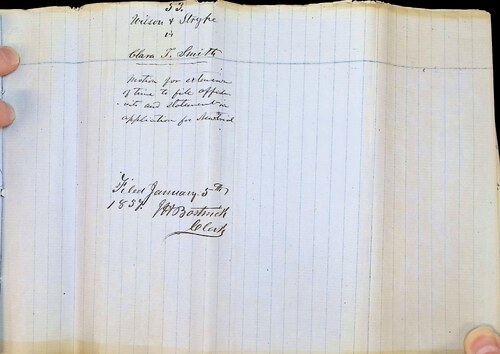 53.
Wilson & Stryke
vs
Clara T. Smith
Motion for extension
of time to file affida
-vits and statement on
application for New Trial
Filed January 5th
1857. J H Bostwick
Clerk